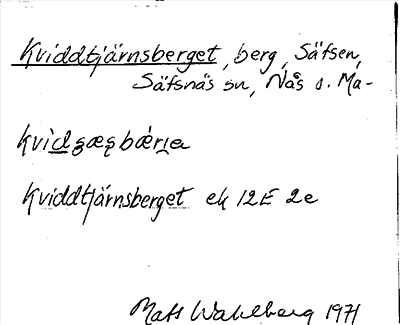 Kviddtjärnsberget, berg, Säfsen,
Säfsnäs sn, Nås o. Ma-
Kviddtjärnsberget ek 12E 2e
Mats Wahlberg 1971